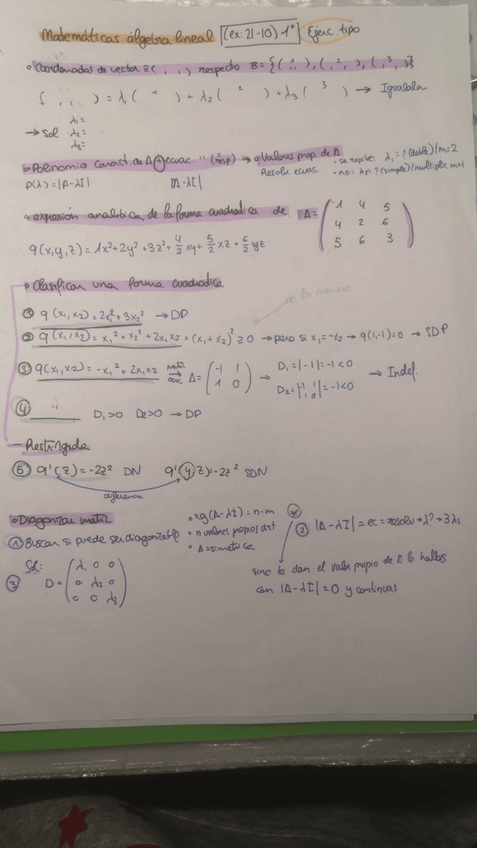 Matemáticas álgebra lineal (ex: 21-10) 1º Ejerc. tipo
• Coordenadas de vector x( , , ) respecto B={( 1, ), ( , 2, ), ( , 3, )}
( , , ) = λ( 1 ) + λ2( 2 ) + λ3( 3 ) → Igualala
→ Sol λ1=
λ2=
λ3=
• Polinomio caract. de A ecuac. " → Valores prop. de A
P(λ)=|A-λI| |A-λI| Resolv. ecuac.
- se repite: λ1=? (doble)/m=2
- no: λ?=? (simple)/multiple m=1
• expresión analítica de la forma cuadratica de A= (1 4 5
4 2 6
5 6 3)
q(x,y,z)=1x²+2y²+3z²+4/2xy+5/2xz+6/2yz
• Clasificar una forma cuadrática
① q(x1,x2)=2x1²+3x2² → DP
② q(x1,x2)=x1²+x2²+2x1x2=(x1+x2)²≥0 → pero si x1=-x2 → q(1,-1)=0 → SDP
③ q(x1,x2)=-x1²+2x1x2 matriz asoc. A=(-1 1
1 0) → D1=|-1|=-1<0
D2=|-1 1
1 0|=-1<0 → Indef.
④ " D1>0 D2>0 → DP
- Restringida
⑤ q'(z)=-2z² DN q'(y,z)=-2z² SDN
diferencia
• Diagonizar matriz
① Buscar si puede ser diagonizable
• rg(A-λI)=n-m
• n valores propios dist
• A=simétrica
② |A-λI|=ec=resolv→λ?→3λs
sino te dan el valor propio de A lo hallas
con |A-λI|=0 y continuas
③ Sol:
D=(λ1 0 0
0 λ2 0
0 0 λ3)